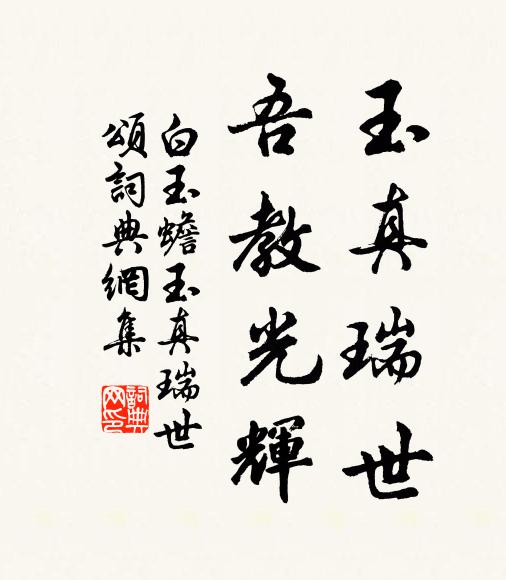 玉真瑞世
吾教光輝
白玉蟾玉真瑞世
頌詞典網集
詞典
网印